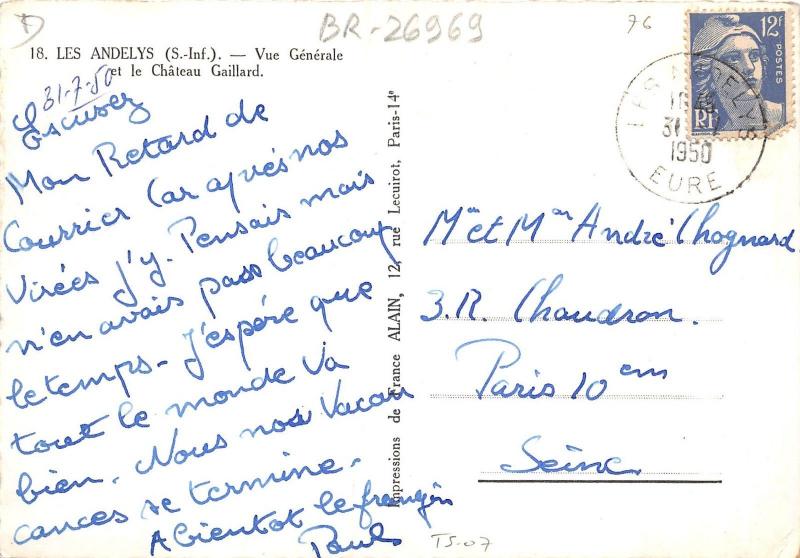 BR-26969
76
18. LES ANDELYS (S.-Inf.). — Vue Générale
et le Château Gaillard.
31-7-50
Escusez
Mon Retard de
Courrier Car après nos
Virées j'y. Pensais mais
n'en avais pas beaucoup
le temps - J'espère que
tout le monde va
bien. Nous nos Vacan
cances se termine.
A bientot le frangin
Paul
Impressions de France ALAIN, 12, rue Lecuirot, Paris-14e
12F
POSTES
RF
LES ANDELYS
31
1950
EURE
Mr et Mme André Chognard
3. R. Chaudron.
Paris 10 em
Seine
TS-07